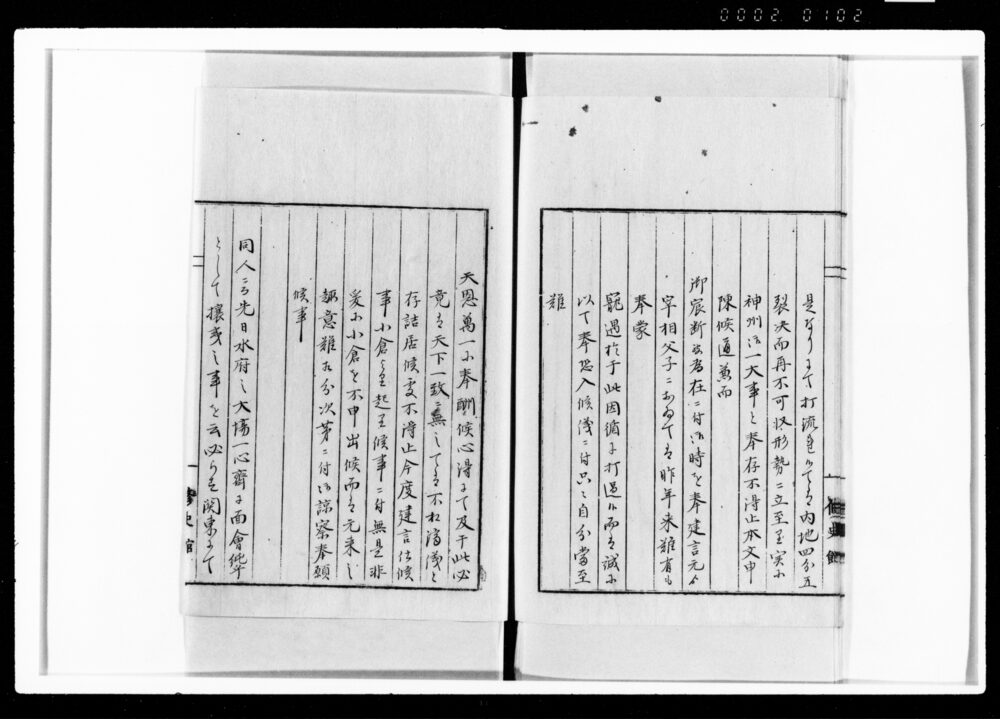 0002 0102
是なりニて打流置候てハ内地四分五
裂決而再不可収形勢ニ立至至実ニ
神州御一大事と奉存不得止本文申
陳候通兼而
御宸断被為在ニ付御時を奉建言元より
宰相父子ニおゐてハ昨年来難有も
奉蒙
寵遇於于此因循ニ打過候而ハ誠ニ
以て奉恐入候儀ニ付只々自分當至
難
修史館
天恩萬一ニ奉酬候心得ニて及于此必
竟ハ天下一致ニ無之てハ不相済儀と
存詰居候処不得止今度建言仕候
事小倉より起至候事ニ付無是非
爰ニ小倉を不申出候而ハ元来之
趣意難相分次第ニ付御諒察奉願
候事
同人ニも先日水府之大場一心齋ニ面會純
として攘夷之事を云必らす関東ニて
修史館